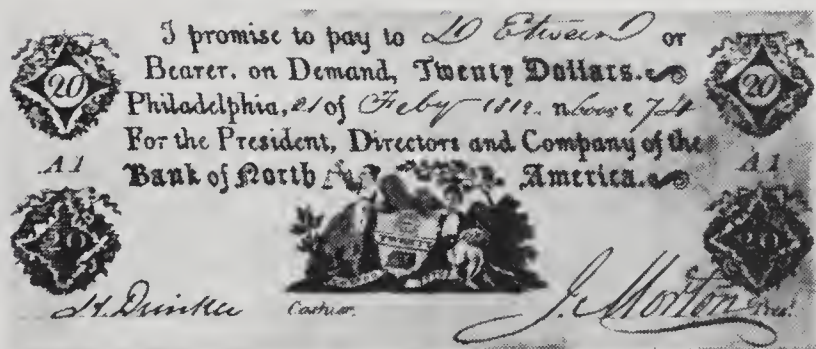 I promise to pay to D Etwein or
20 Bearer, on Demand, Twenty Dollars. 20
Philadelphia, 21 of Feby 1812. no
For the President, Directors and Company of the
A1 Bank of North America. A1
20 20
H. Drinker Cashier. J. Morton Pres.